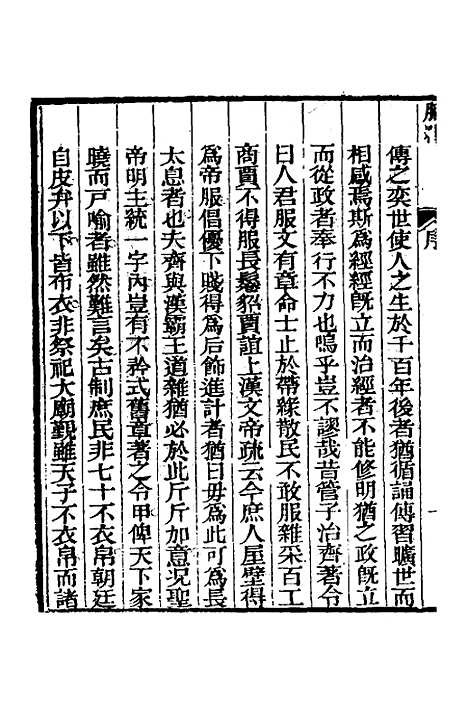 序
傳之奕世使人之生於千百年後者猶循誦傳習曠世而
相感焉斯為經經旣立而治經者不能修明猶之政旣立
而從政者奉行不力也嗚乎豈不謬哉昔管子治齊著令
曰人君服文有章命士止於帶緣散民不敢服雜采百工
商賈不得服長鬈貂賈誼上漢文帝疏云今庶人屋壁得
為帝服倡優下賤得為后飾進計者猶曰毋為此可為長
太息者也夫齊與漢霸王道雜猶必於此斤斤加意况聖
帝明主統一字內豈有不矜式舊章著之令甲俾天下家
曉而戸喻者雖然難言矣古制庶民非七十不衣帛朝廷
自皮弁以下皆布衣非祭祀大廟覲雖天子不衣帛而諸